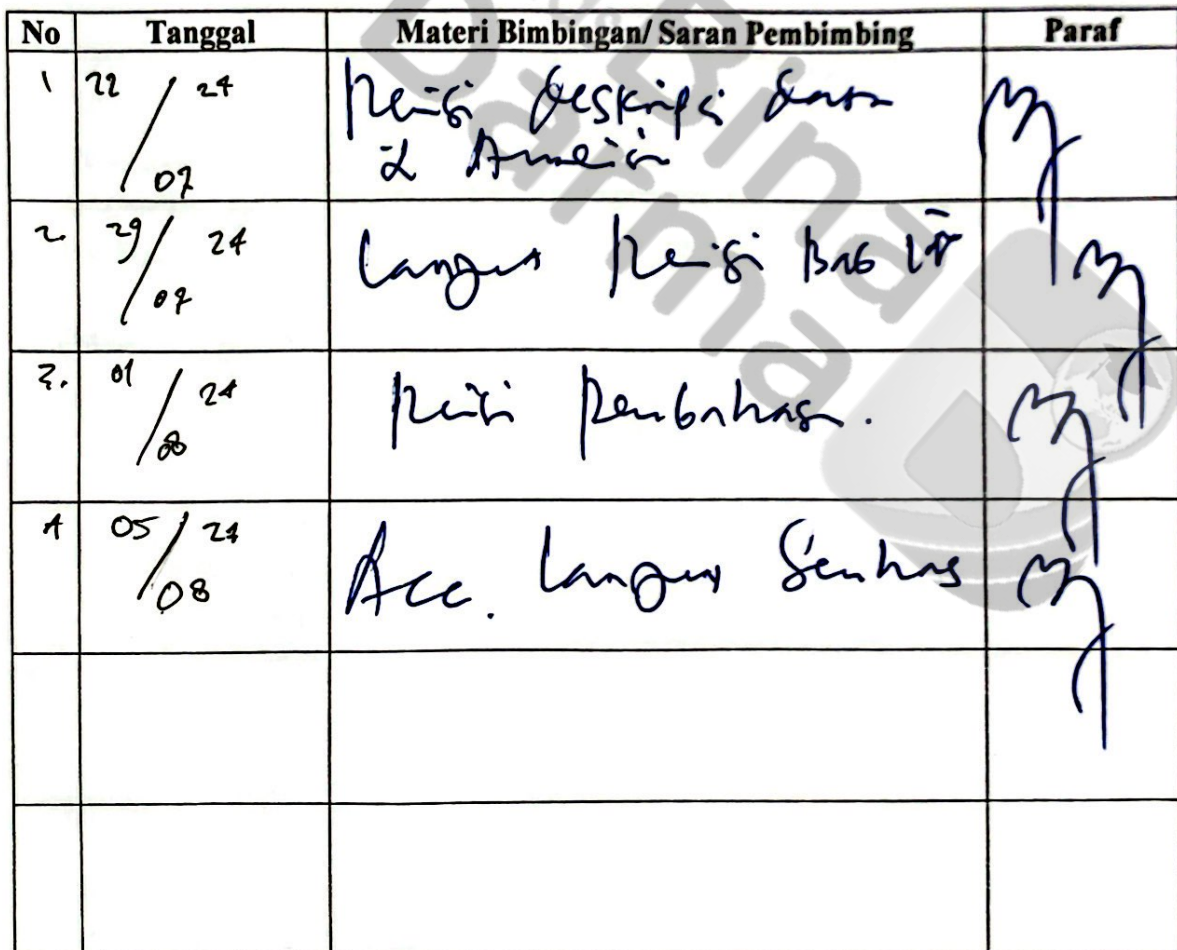 No Tanggal Materi Bimbingan/ Saran Pembimbing Paraf
1 22/07 24 Revisi deskripsi data
2. 29/07 24 Langsung Revisi Bab IV
3. 01/08 24 Revisi Pembahasan.
4 05/08 24 Acc. Langsung Semhas
Bina
Darma